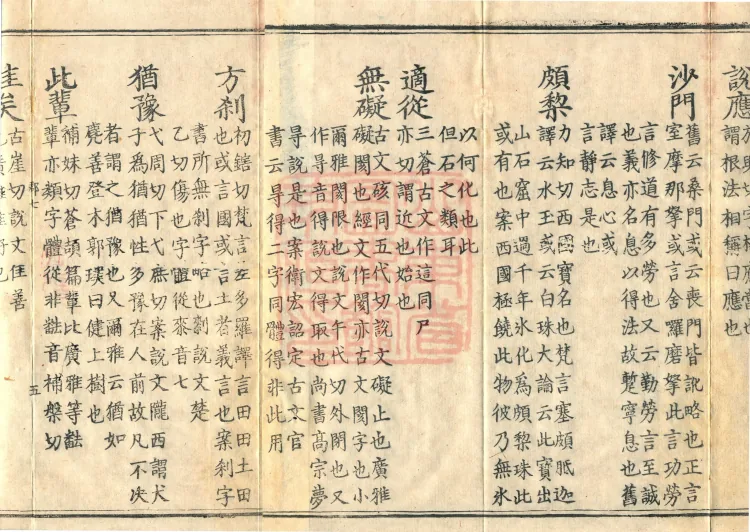 說應
謂根法相稱曰應也
沙門
舊云桑門或云喪門皆訛略也正言
室摩那拏或言舍羅磨拏此言功勞
言修道有多勞也又云勤勞言至誠
也義亦名息以得法故蹔寧息也舊
譯云息心或
言静志是也
頗黎
力知切西國寶名也梵言塞頗胝迦
譯云水玉或云白珠大論云此寶出
山石窟中過千年氷化為頗黎珠此
或有也案西國極饒此物彼乃無氷
以何化也此
但石之類耳
適從
三蒼古文作這同尸
亦切謂近也始也
無礙
古文硋同五代切說文礙止也廣雅
礙閡也經文作閡亦古文閡字也小
爾雅閡限也說文午代切外閉也又
作㝵音得說文㝵取也尚書高宗夢
㝵說是也案衛宏詔定古文官
書云㝵得二字同體得非此用
方刹
初鎋切梵言差多羅譯言田田土田
也或言國或言土者義言也案刹字
書所無剎字略也剎說文楚
乙切傷也字體從桼音七
猶豫
弋周切下弋庶切案說文隴西謂犬
子為猶猶性多豫在人前故凡不决
者謂之猶豫也又爾雅云猶如
麂善登木郭璞曰健上樹也
此輩
補妹切蒼頡篇輩比廣雅等
輩亦類字體從非 音補槃切
五
古崖切說文佳善